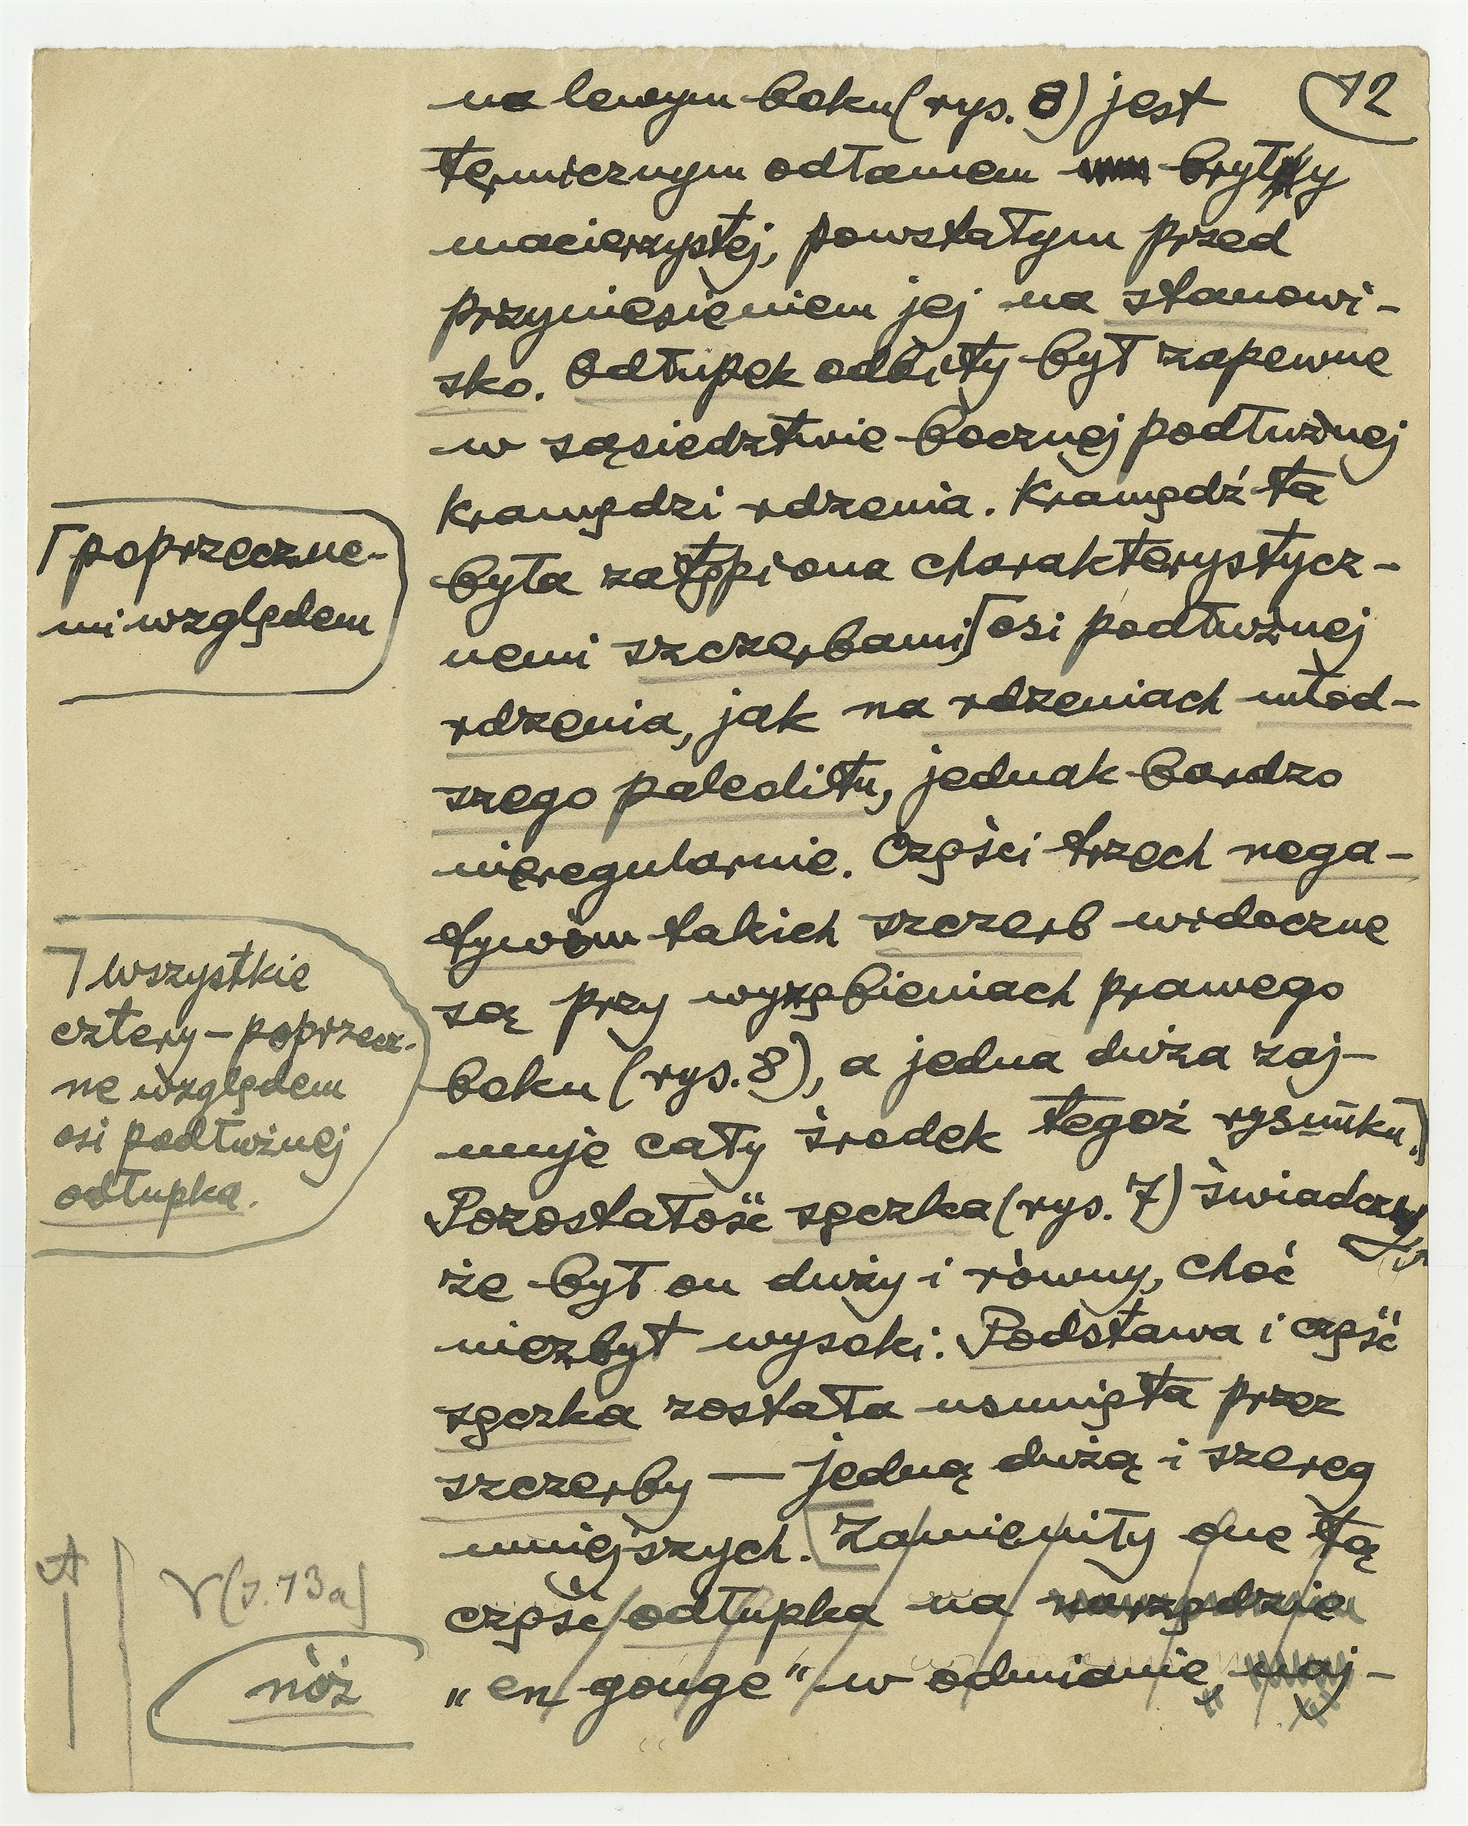 12
na lewym boku (rys. 8) jest
termicznym odłamem bryły
macierzystej, powstałym przed
przyniesieniem jej na stanowi-
sko. Odłupek odbity był zapewne
w sąsiedztwie bocznej podłużnej
krawędzi rdzenia. Krawędź ta
była zatępiona charakterystycz-
nemi szczerbami, ⌈osi podłużnej
⌈poprzeczne-
mi względem
rdzenia, jak na rdzeniach młod-
szego paleolitu, jednak bardzo
nieregularnie. Części trzech nega-
tywów takich szczerb widoczne
są przy wyzębieniach prawego
boku (rys. 8), a jedna duża zaj-
muje cały środek tegoż rysunku.⌉
⌉wszystkie
cztery – poprzecz-
ne względem
osi podłużnej
odłupka.
Pozostałość sęczka (rys. 7) świadczy,
że był on duży i równy, choć
niezbyt wysoki. Podstawa i część
sęczka została usunięta przez
szczerby — jedną dużą i szereg
mniejszych. [Zamieniły one tą
część odłupka na narzędzie
„en gouge" w odmianie naj-
(s. 13a)
nóż